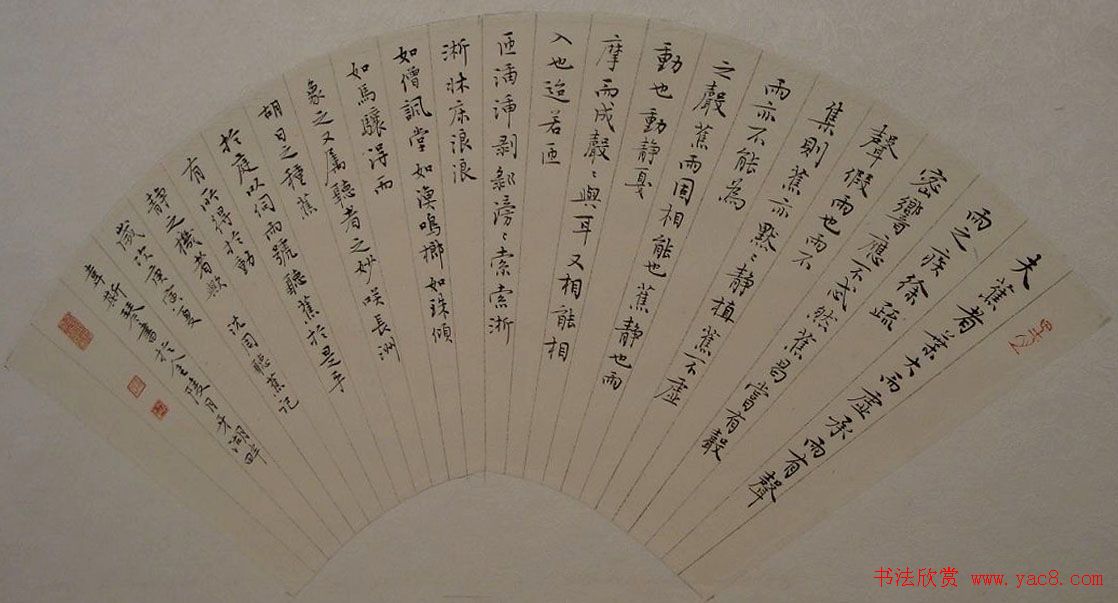 夫蕉者葉大而虛承雨有聲
雨之疾徐疏
密響應不忒然蕉曷當有聲
聲假雨也雨不
集則蕉亦默〻靜植蕉不虛
雨亦不能為
之聲蕉雨固相能也蕉靜也雨
動也動靜戛
摩而成聲〻與耳又相能相
入也迨若匝
匝潘潘剝剝滂〻索索淅
淅牀床浪浪
如僧諷堂如漁鳴榔如珠傾
如馬驤得而
象之又屬聽者之妙咲長洲
胡日之種蕉
於庭以伺雨號聽蕉於是乎
有所得於動
靜之機者歟 沈周聽蕉記
歲次庚寅夏
韋斯琴書於金陵月牙湖畔
书法欣赏 www.yac8.com